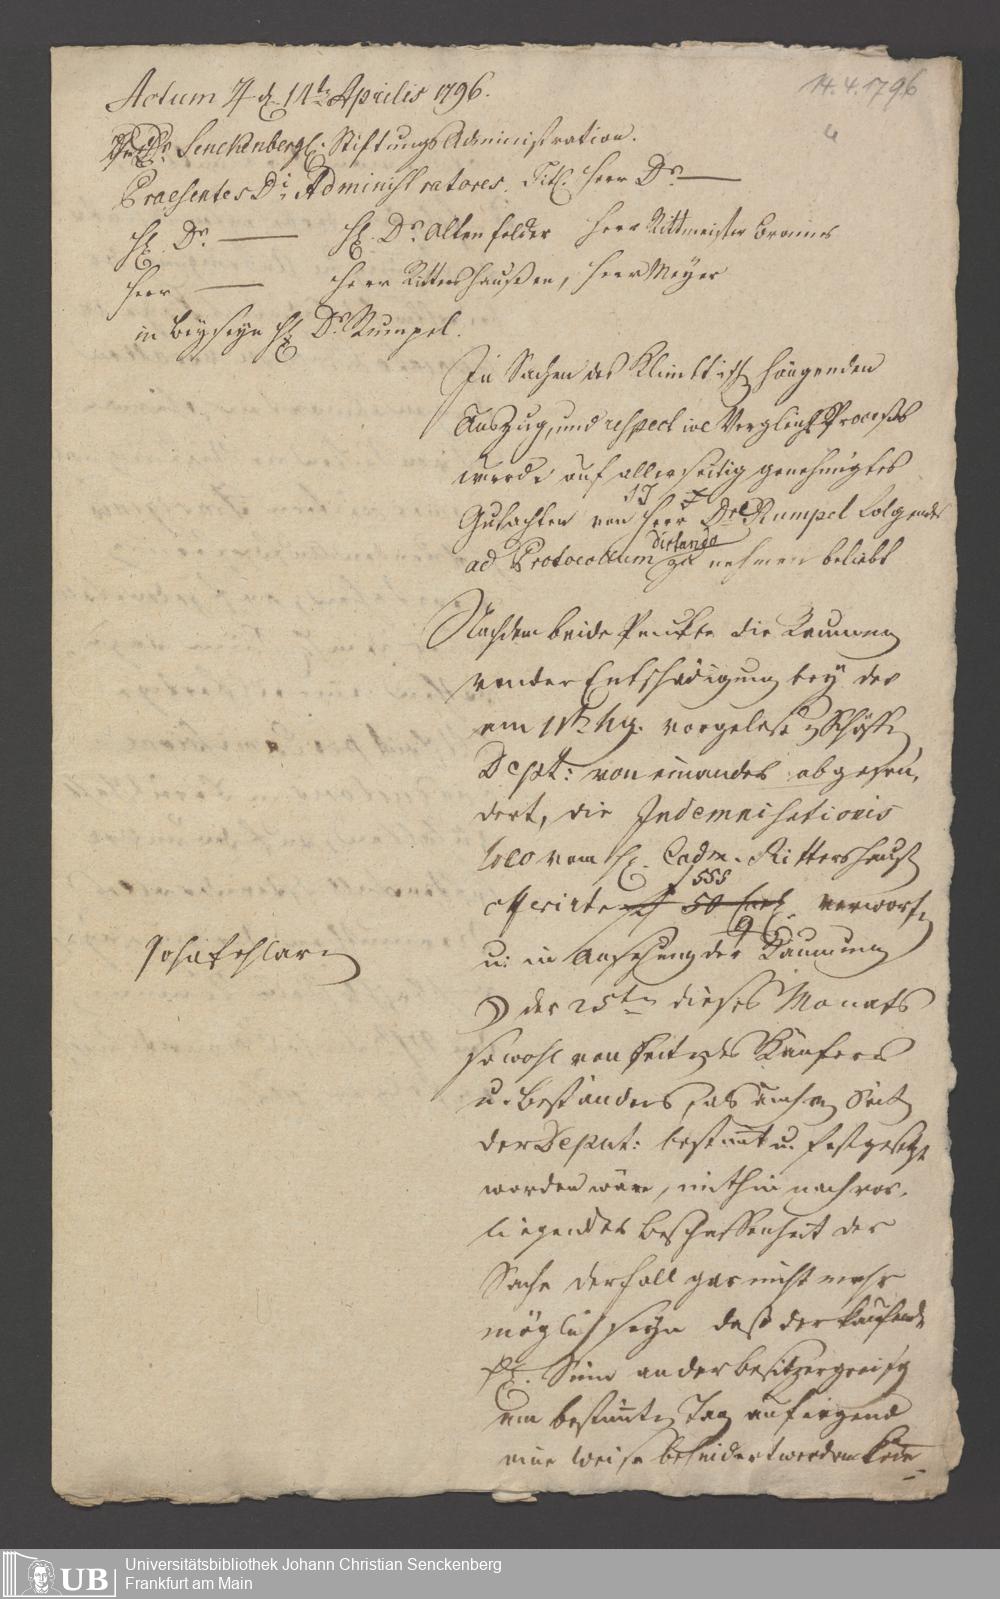 Actum ♃ d. 14tn Aprilis 1796.
14.4.1796
Senckenbergl: Stiftungs Administration.
Praesentes Di Administratores. Titl. Herr Dr. —
H. Dr. — H. Dr. Altenfelder Herr Rittmeister
Herr — Herr Rittershaußen, Herr Meyer
in Beyseyn H. Dr. Rumpel.
In Sachen des Klimktisch hängenden
Auszug, und respective Vergleichs Processes
wurde auf allerseitig genehmigtes
Gutachten von Herr Dr. Rumpel Folgendes
dictando
ad Protocollum zu nehmen beliebt
Nachdem beide Punkte die Raumung
von der Entschädigung bey der
am 11tn hg. vorgelese Schöff
Dept: von einander abgeson,
dert, die Indemnisationis
loco vom H. Cadm. Rittershauß
555
offerirte f 50 verworfen
u: in Ansehung der Räumung
der 25te dieses Monats
sowohl von Seiten des Käufers
u. Beständers, als auch von Seiten
der Deput: bestimmt u. festgesetzt
worden wäre, mithin nach vor,
liegender Beschaffenheit der
Sache der Fall gar nicht mehr
möglich seye daß der kaufende
H. an der Besitzergreifg
am bestimten Tag auf irgend
eine Weise behindert werden könne
UB
Universitätsbibliothek Johann Christian Senckenberg
Frankfurt am Main